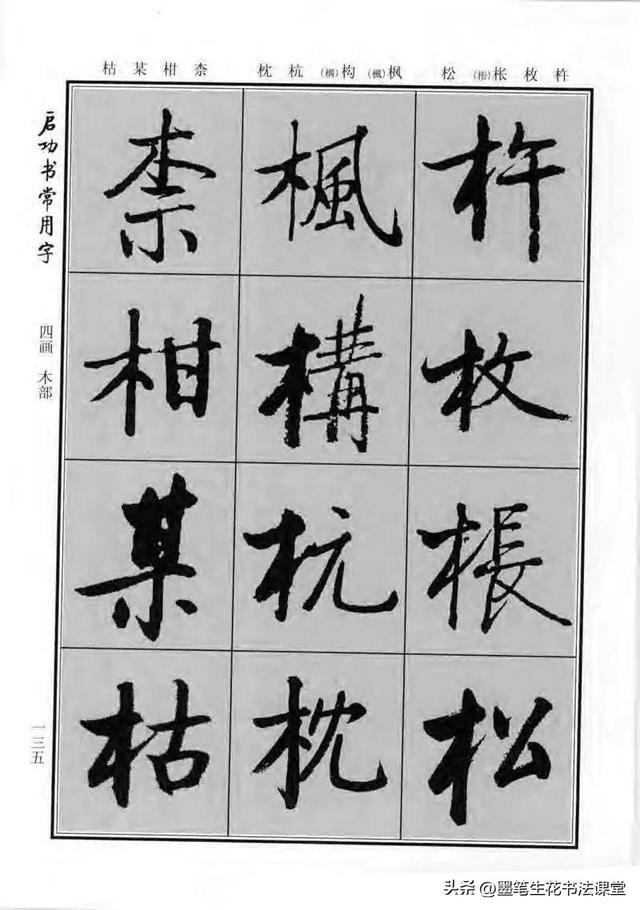 杵枚枨(棖)松 枫(楓)构(構)杭枕 柰柑某枯
杵枚棖松
楓構杭枕
柰柑某枯
启功书常用字
四画 木部
一三五
头条 @墨笔生花书法课堂